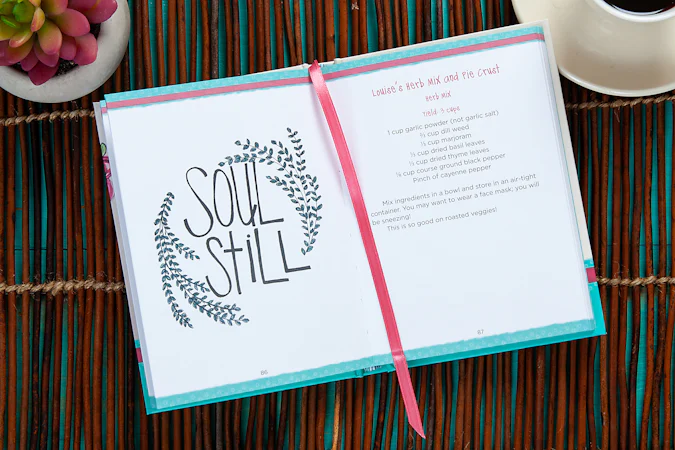 SOUL
STiLL
86
Louise's Herb Mix and Pie Crust
Herb Mix
Yield: 3 cups
1 cup garlic powder (not garlic salt)
¾ cup dill weed
½ cup marjoram
½ cup dried basil leaves
½ cup dried thyme leaves
¼ cup course ground black pepper
Pinch of cayenne pepper
Mix ingredients in a bowl and store in an air-tight
container. You may want to wear a face mask; you will
be sneezing!
This is so good on roasted veggies!
87